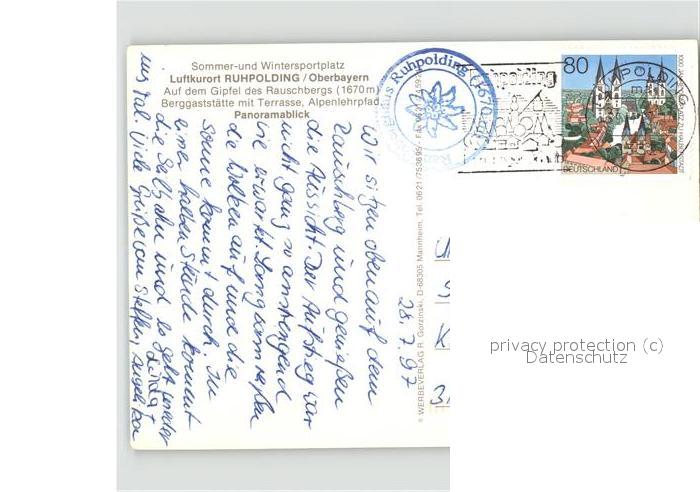 Sommer-und Wintersportplatz
Luftkurort RUHPOLDING / Oberbayern
Auf dem Gipfel des Rauschbergs (1670m)
Berggaststätte mit Terrasse, Alpenlehrpfad,
Panoramablick
Ruhpolding (1670 m)
Ruhpolding
80
DEUTSCHLAND
28.7.97
Wir sitzen oben auf dem
Rauschberg und genießen
die Aussicht. Der Aufstieg war
nicht ganz so anstrengend
wie erwartet. Langsam reißen
die Wolken auf und die
Sonne kommt durch. In
einer halben Stunde kommt
die Seilbahn und es geht wieder
ins Tal. Viele Grüße von Steffen,
© WERBEVERLAG R. Gorzinski, D-68305 Mannheim, Tel. 0621/753695
privacy protection (c)
Datenschutz